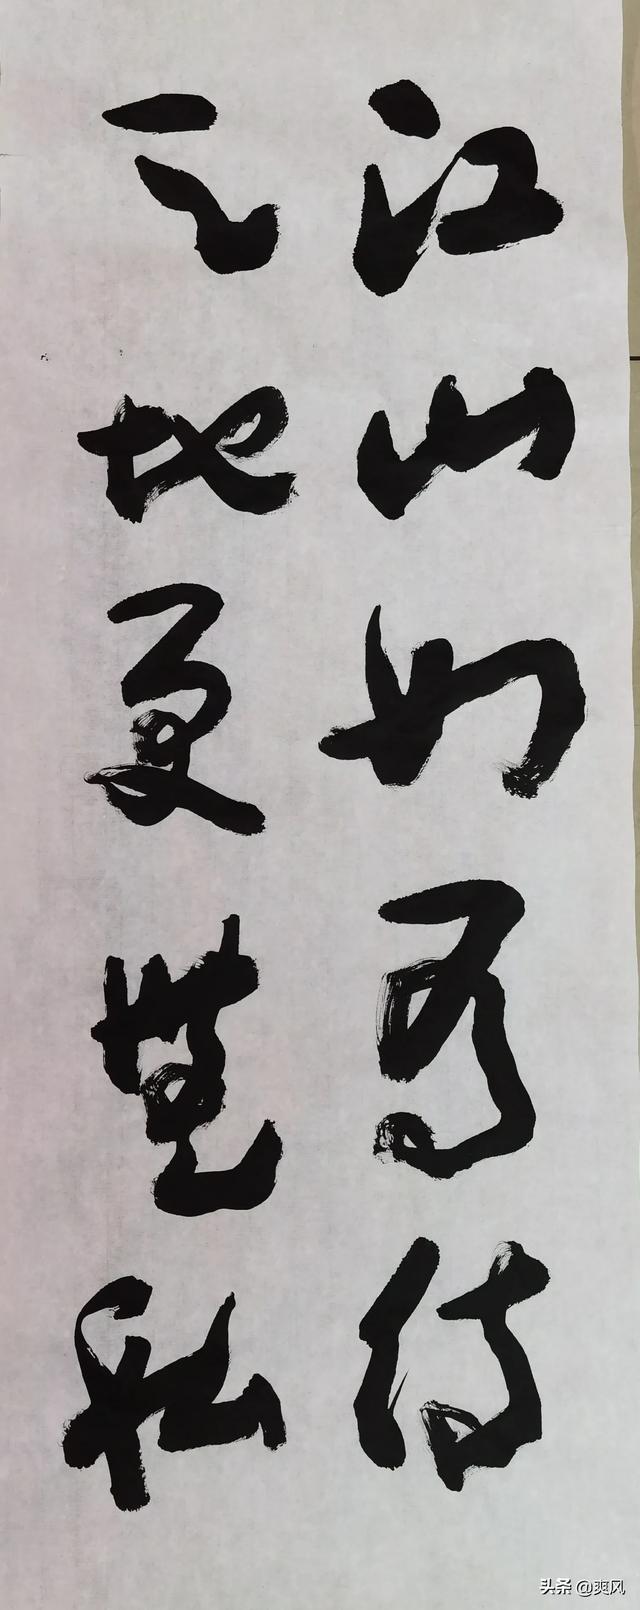 江山如有待
天地更無私
头条 @爽风